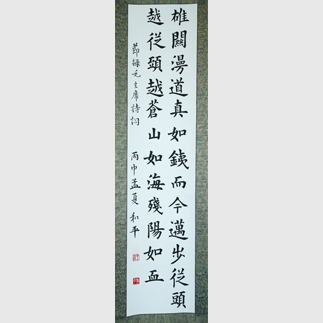 雄關漫道真如鐵而今邁步從頭
越從頭越蒼山如海殘陽如血
節錄毛主席詩詞 丙申孟夏 和平